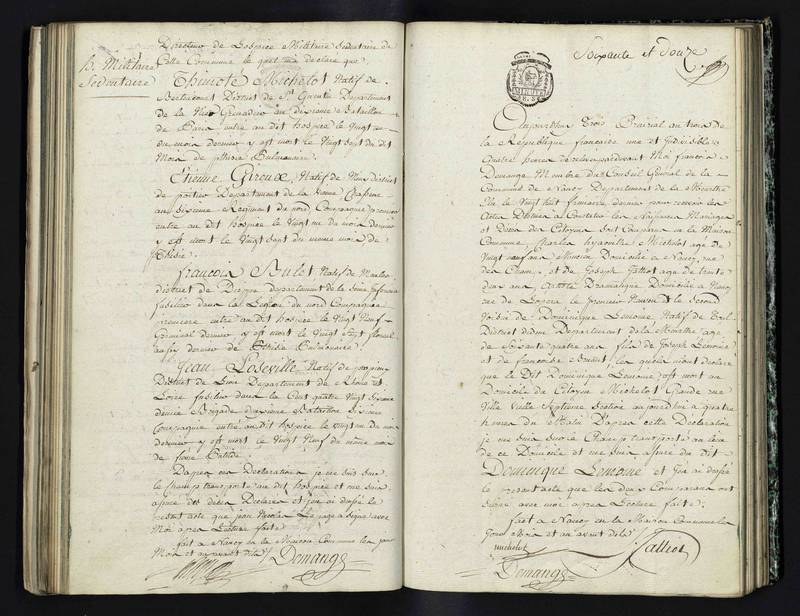 h. Militaire
Sedentaire
Directeur de Lospice Militaire Sedentaire de
Cette Commune le quel ma declare que
Thimote Michelot Natif de
District de St Quentin Departement
de la Grenadier au Bataillon
de Paris entre au dit hospice le vingt
du mois dernier y est mort le vingt sept du dit
Mois de phtisie Pulmonaire
Etienne Giroux Natif de District
de poitier Departement de la Vienne Chasseur
au Sixieme Regiment du nord Compagnie
entre au dit hospice le vingt un du mois dernier
y est mort le vingt sept du meme mois de
phtisie
francois Rulet Natif de
District de Dieppe departement de la Seine Inferieure
fusilier dans la Legion du nord Compagnie
premiere entre au dit hospice le vingt Neuf
Germinal dernier y est mort le vingt sept floreal
aussy dernier de Ethisie Pulmonaire
Jean Loseville Natif de
District de Departement de Rhone et
Loire fusilier dans la Cent quatre Vingt
demie Brigade Bataillon
Compagnie entre au dit hospice le vingt un du mois
dernier y est mort le Vingt Neuf du même mois
de fievre Putride
Dapres ces Declarations je me suis sur
le champ transporte au dit hospice et me suis
assure des deces Declares et j'en ai dressé le
present acte que jean Nicolas Lepage a signe avec
Moi apres Lecture faite
fait a Nancy en la Maison Commune les jour
Mois et an avant dits
Demange
Soixante et Douze
Aujourdhui Trois Prairial an trois de
la Republique francaise une et Indivisible a
Quatre heures de relevee pardevant Moi francois
Demange Membre du Conseil General de la
Commune de Nancy Departement de la Meurthe
Elu le Vingt huit frimaire dernier pour recevoir les
Actes Destines a Constater les Naissances Mariages
et Deces des Citoyens Sont Comparus en la Maison
Commune Charles hyacinthe Michelot age de
Vingt neuf ans Musicien Domicilie a Nancy rue
des Champs et de Joseph Talliot age de trente
ans Artiste Dramatique Domicilie a Nancy
rue de Lopera le premier Neveu et le Second
Voisin de Dominique Lemoine Natif de Toul
District dudit Departement de la Meurthe age
de Soixante quatre ans fils de Joseph Lemoine
et de francoise les quels mont declare
que le Dit Dominique Lemoine est mort au
Domicile du Citoyen Michelot Grande rue
Ville Vieille Septieme Section aujourdhui a quatre
heures du Matin Dapres cette Declaration
je me suis sur le Champ transporté au lieu
de ce Domicile et me suis assure du dit
Dominique Lemoine et j'en ai dressé
le present acte que les deux Comparans ont
Signe avec moi apres Lecture faite
fait a Nancy en la Maison Commune les
Jour Mois et an avant dits
michelot
Talliot
Demange